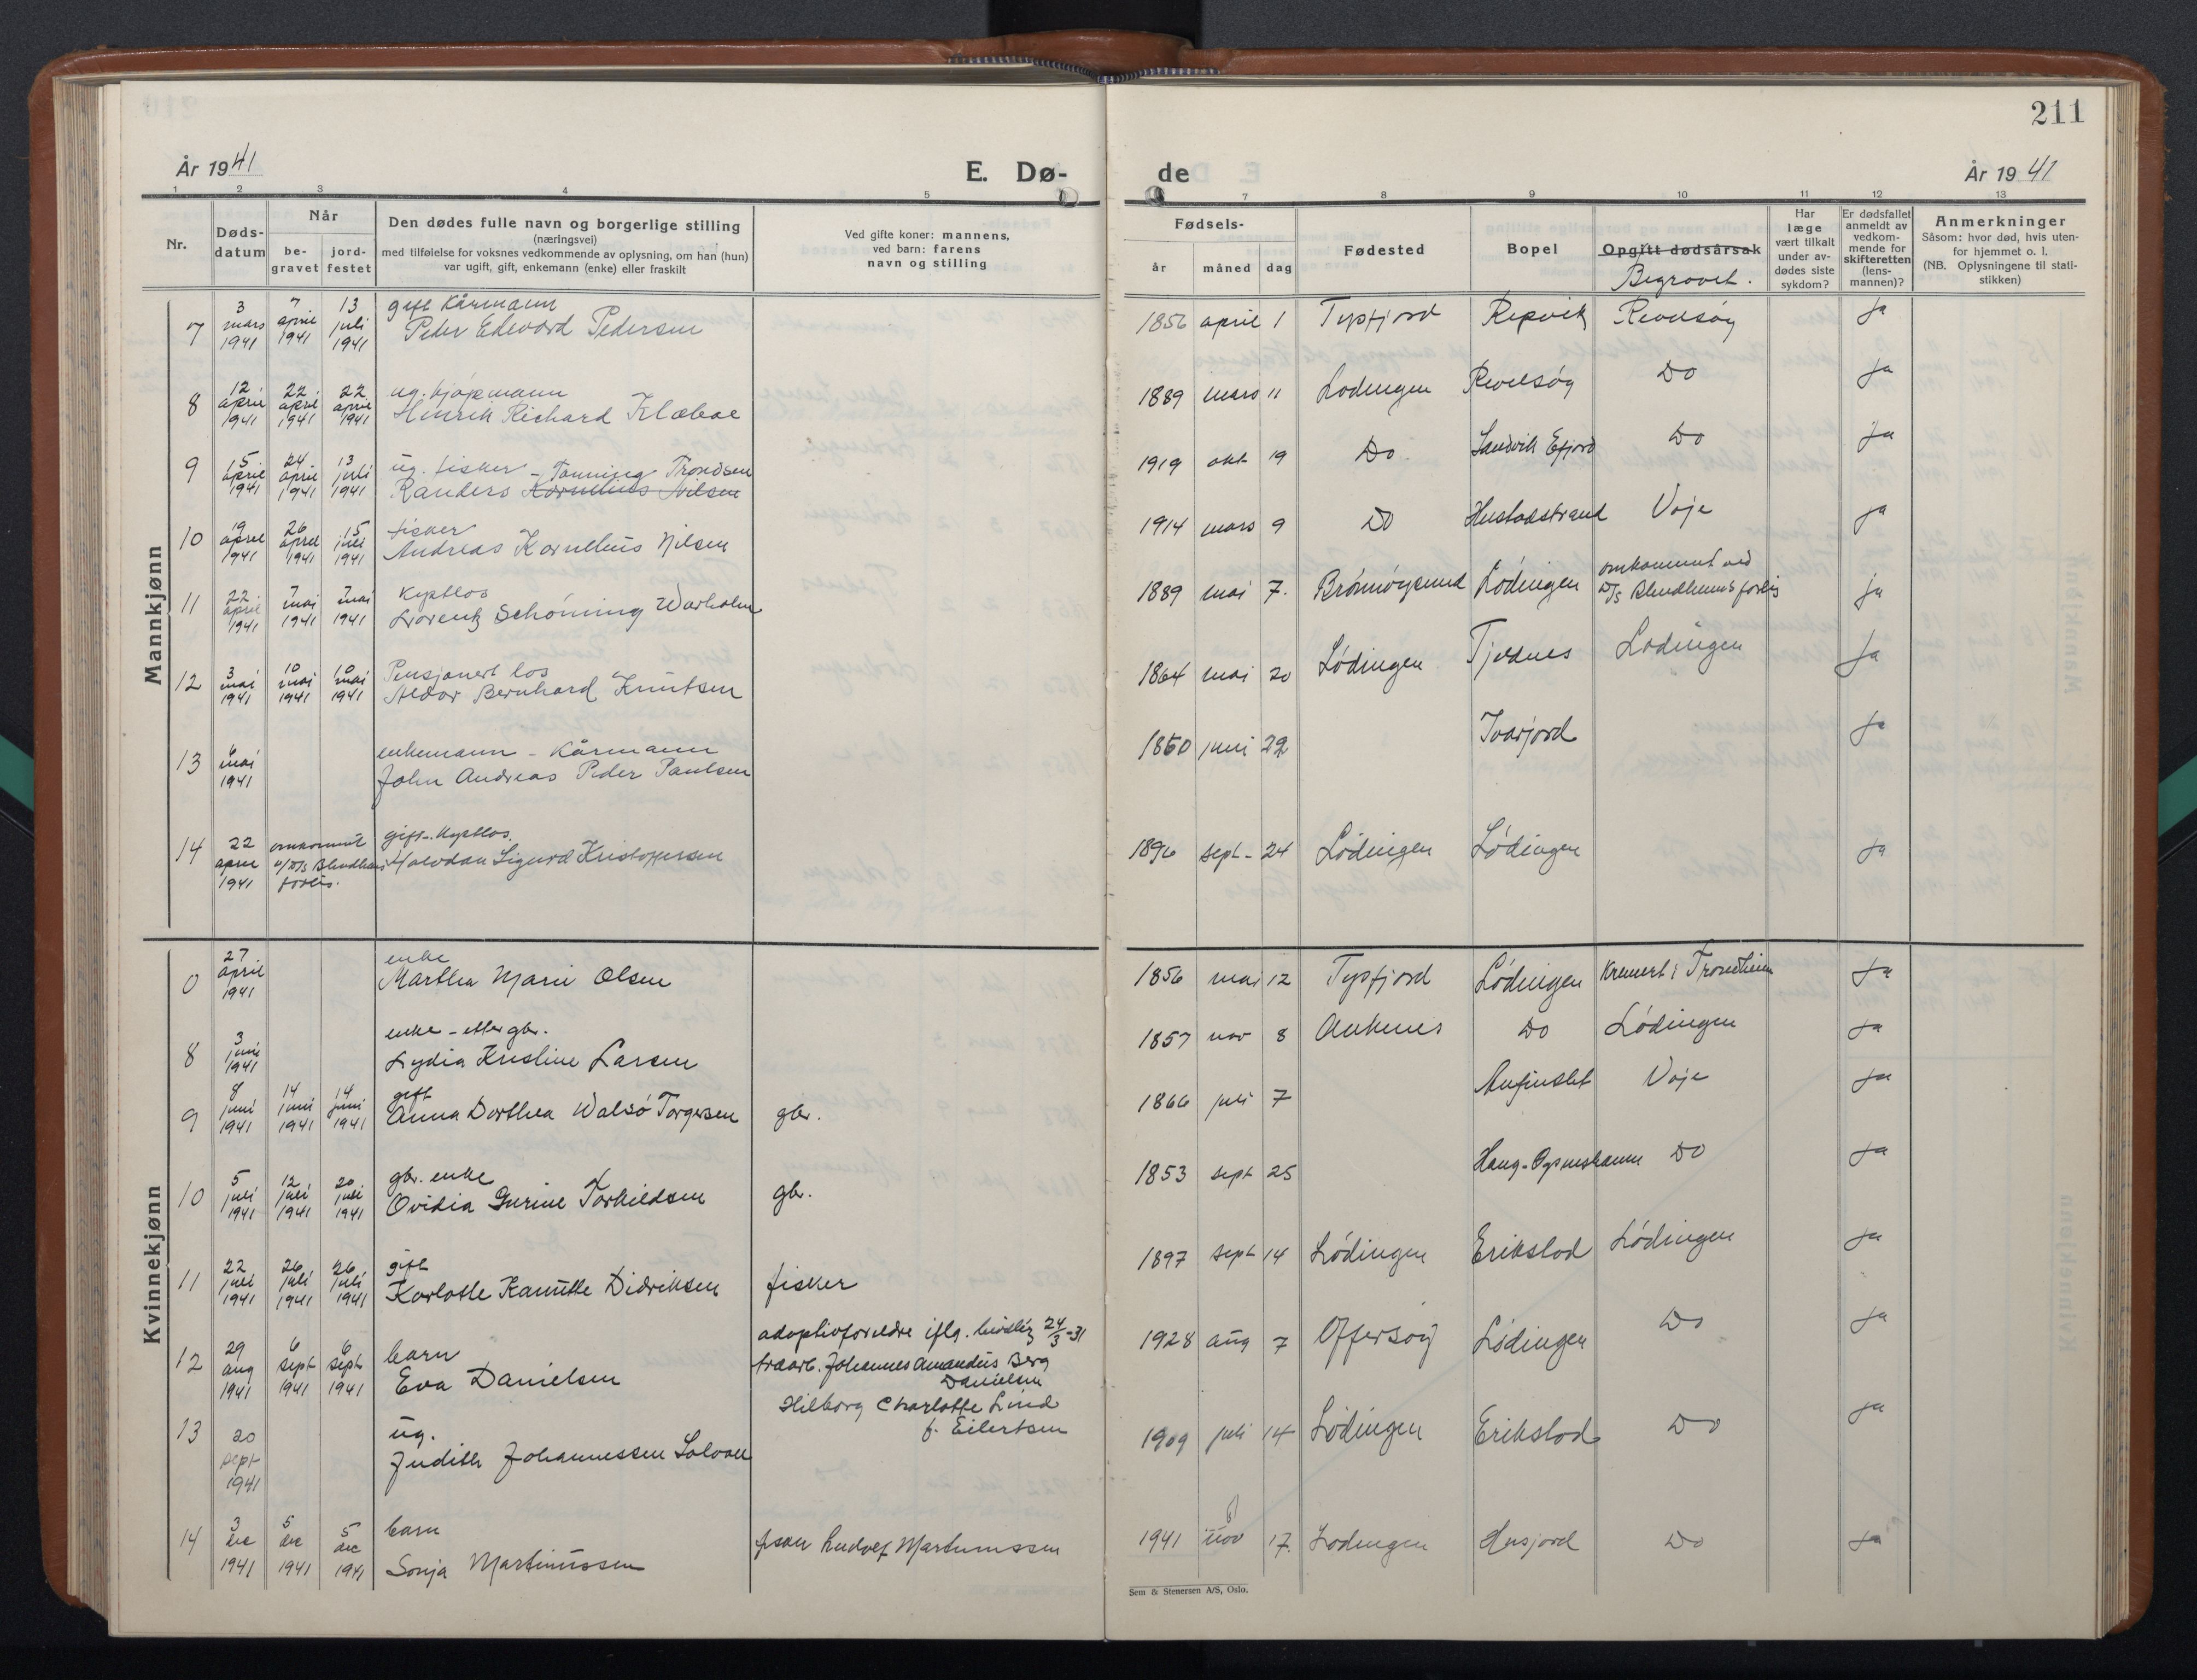 211
År 1941
E. Dø-
de
År 1941
1 2 3 4 5 7 8 9 10 11 12 13
Nr.
Døds-
datum
Når
be-
gravet
jord-
festet
Den dødes fulle navn og borgerlige stilling
(næringsvei)
med tilføielse for voksnes vedkommende av oplysning, om han (hun)
var ugift, gift, enkemann (enke) eller fraskilt
Ved gifte koner: mannens,
ved barn: farens
navn og stilling
Fødsels-
år måned dag
Fødested
Bopel
Opgitt dødsårsak
Begravet.
Har
læge
vært tilkalt
under av-
dødes siste
sykdom?
Er dødsfallet
anmeldt av
vedkom-
mende for
skifteretten
(lens-
mannen)?
Anmerkninger
Såsom: hvor død, hvis uten-
for hjemmet o. l.
(NB. Oplysningene til stati-
stikken)
Mannkjønn
7 3 mars 1941 7 april 1941 13 juli 1941 gift Kårmann
Peder Edevard Pedersen 1856 april 1 Tysfjord Repvik Revelsøy Ja
8 12 april 1941 22 april 1941 22 april 1941 ug. kjøpmann
Henrik Richard Klæboe 1889 mars 11 Lødingen Revelsøy Do Ja
9 15 april 1941 24 april 1941 13 juli 1941 ug. fisker - Tanning Trondsen
Randers Kornelius Nilsen 1919 okt 19 Do Sandvik Efjord Do Ja
10 19 april 1941 26 april 1941 15 juli 1941 fisker
Andreas Kornelius Nilsen 1914 mars 9 Do Hustadstrand Voje Ja
11 22 april 1941 7 mai 1941 7 mai 1941 Kystlos
Lorentz Schöning Warholm 1889 mai 7. Brønnøysund Lødingen omkommet ved
D/S Blindheims forlis ja
12 3 mai 1941 10 mai 1941 10 mai 1941 Pensjonert los
Aldor Bernhard Knutsen 1864 mai 20 Lødingen Tjeldnes Lødingen Ja
13 6 mai 1941 enkemann - Kårmann
John Andreas Peder Paulsen 1860 juni 22 Ivarjord Ja
14 22 april 1941 omkommet
v/D/S Blindheims
forlis. gift - Kystlos.
Halvdan Sigurd Kristoffersen 1896 sept - 24 Lødingen Lødingen Ja
Kvinnekjønn
0 27 april 1941 enke
Martha Marie Olsen 1856 mai 12 Tysfjord Lødingen Kremert i Trondheim Ja
8 3 juni 1941 enke - etter gbr.
Lydia Kristine Larsen 1857 nov 8 Ankenes Do Lødingen Ja
9 8 juni 1941 14 juni 1941 14 juni 1941 gift
Anna Dorthea Walsö Torgersen gbr. 1866 juli 7 Voje Ja
10 5 juli 1941 12 juli 1941 20 juli 1941 gbr. enke
Ovidia Gurine Torkildsen gbr. 1853 sept 25 Do Ja
11 22 juli 1941 26 juli 1941 26 juli 1941 gift
Karlotte Kanutte Didriksen fisker 1897 sept 14 Lødingen Erikstad Lødingen Ja
12 29 aug 1941 6 sept 1941 6 sept 1941 barn
Eva Danielsen adoptivforeldre iflg. 24/3-31
trearb. Johannes Amandus Berg
Danielsen
Hilborg Charlotte Lind
f. Eilertsen 1928 aug 7 Offersøy Lødingen Do Ja
13 20 sept 1941 ug.
Judith Johannessen Solvoll 1909 juli 14 Lødingen Erikstad Do Ja
14 3 dec 1941 5 dec 1941 5 dec 1941 barn
Sonja Martinussen fisker Rudolf Martinussen 1941 nov 17. Lødingen Husjord Do Ja
Sem & Stenersen A/S, Oslo.